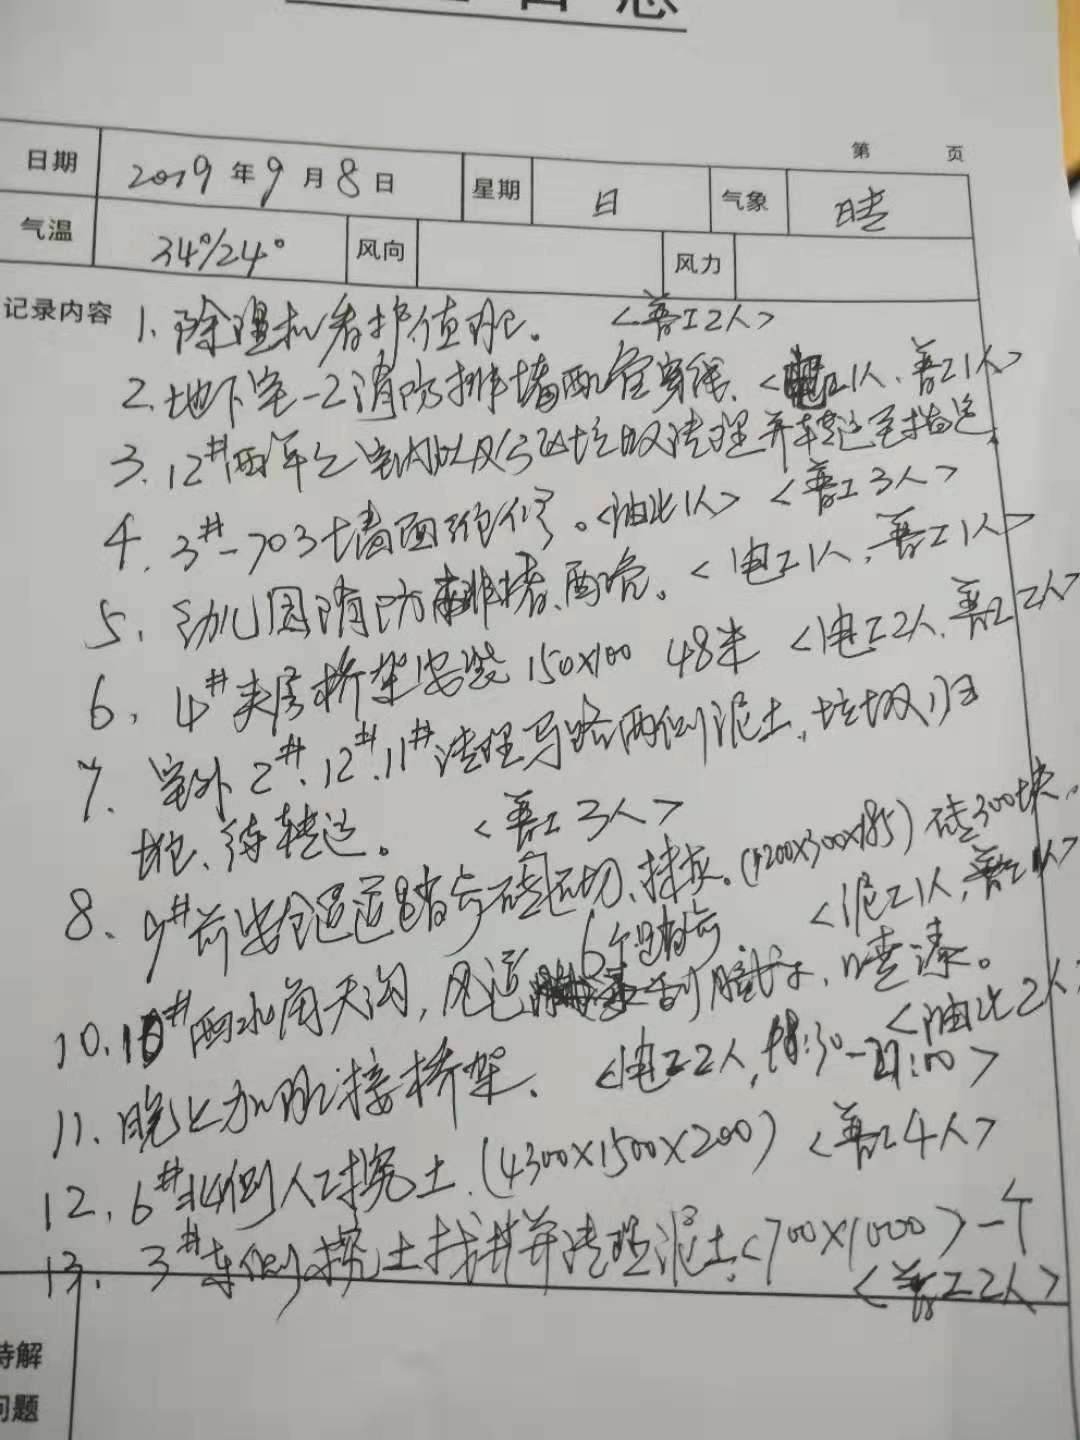 第 页
日期 2019年9月8日 星期 日 气象 晴
气温 34°/24° 风向 风力
记录内容 1. 看护值班。 <普工2人>
2. 地下室-2消防排墙配管穿线、<电工1人、普工1人>
3. 12#两单元室内以及 垃圾清理并转运至指定
4. 3#-703墙面维修。<油漆1人> <普工3人>
5. 幼儿园消防 排堵、配管。<电工1人，普工1人>
6. 4#夹层桥架安装150x100 48米 <电工2人、普工2人>
7. 室外2#、12#、11#清理马路两侧泥土、垃圾归
堆、待转运。 <普工3人>
8. 9#前安全通道踏步砖运切、抹灰。(4200x300x185) 砖300块、
6个踏步 <泥工1人，普工1人>
10. 10#雨水 天沟，风道 刮腻子，喷漆。
<油漆2人>
11. 晚上加班接桥架、 <电工2人，18:30-21:00>
12. 6#北侧人工挖土、(4300x1500x200) <普工4人>
13. 3#东侧挖土找井并清理泥土、<700x1000>一个
<普工2人>
待解
问题